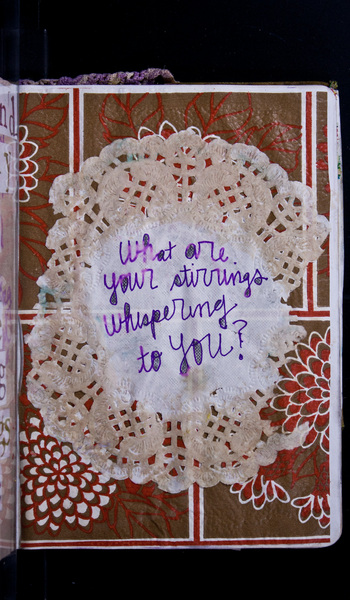 What are
your stirrings
whispering
to you?